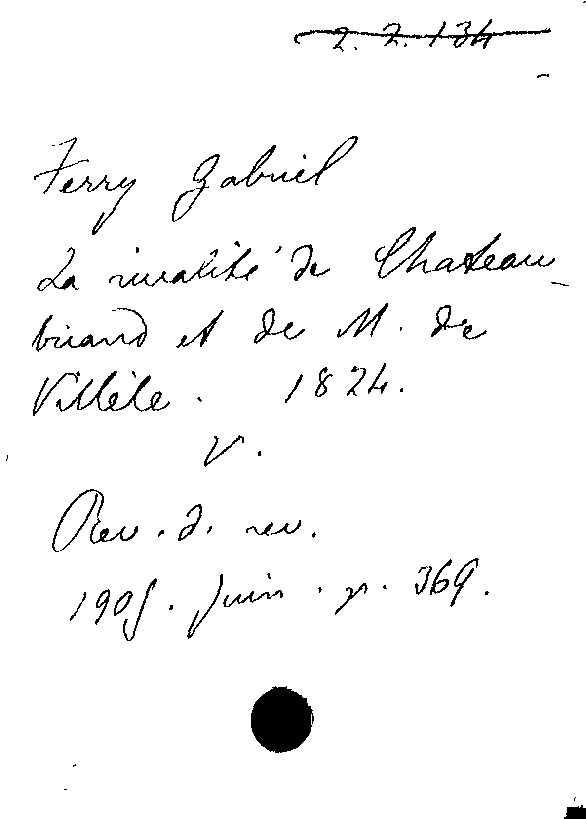 2. 2. 134
Ferry Gabriel
La rivalité de Chateau-
briand et de M. de
Villèle. 1824.
V.
Rev. d. rev.
1905. Juin. p. 369.